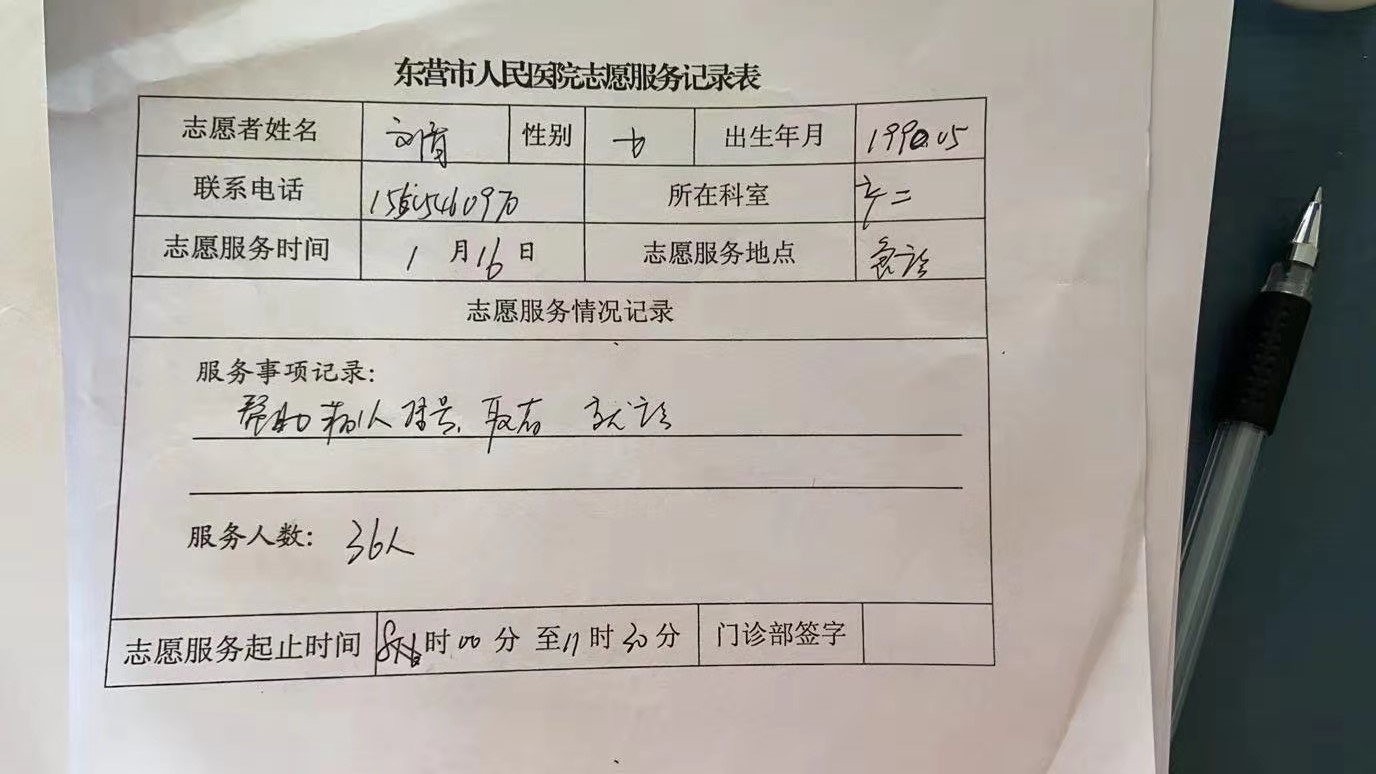 东营市人民医院志愿服务记录表
志愿者姓名 性别 女 出生年月 1990.05
联系电话 所在科室
志愿服务时间 1月16日 志愿服务地点 急诊
志愿服务情况记录
服务事项记录:
帮助病人挂号、取药 就诊
服务人数: 36人
志愿服务起止时间 8时00分 至11时30分 门诊部签字